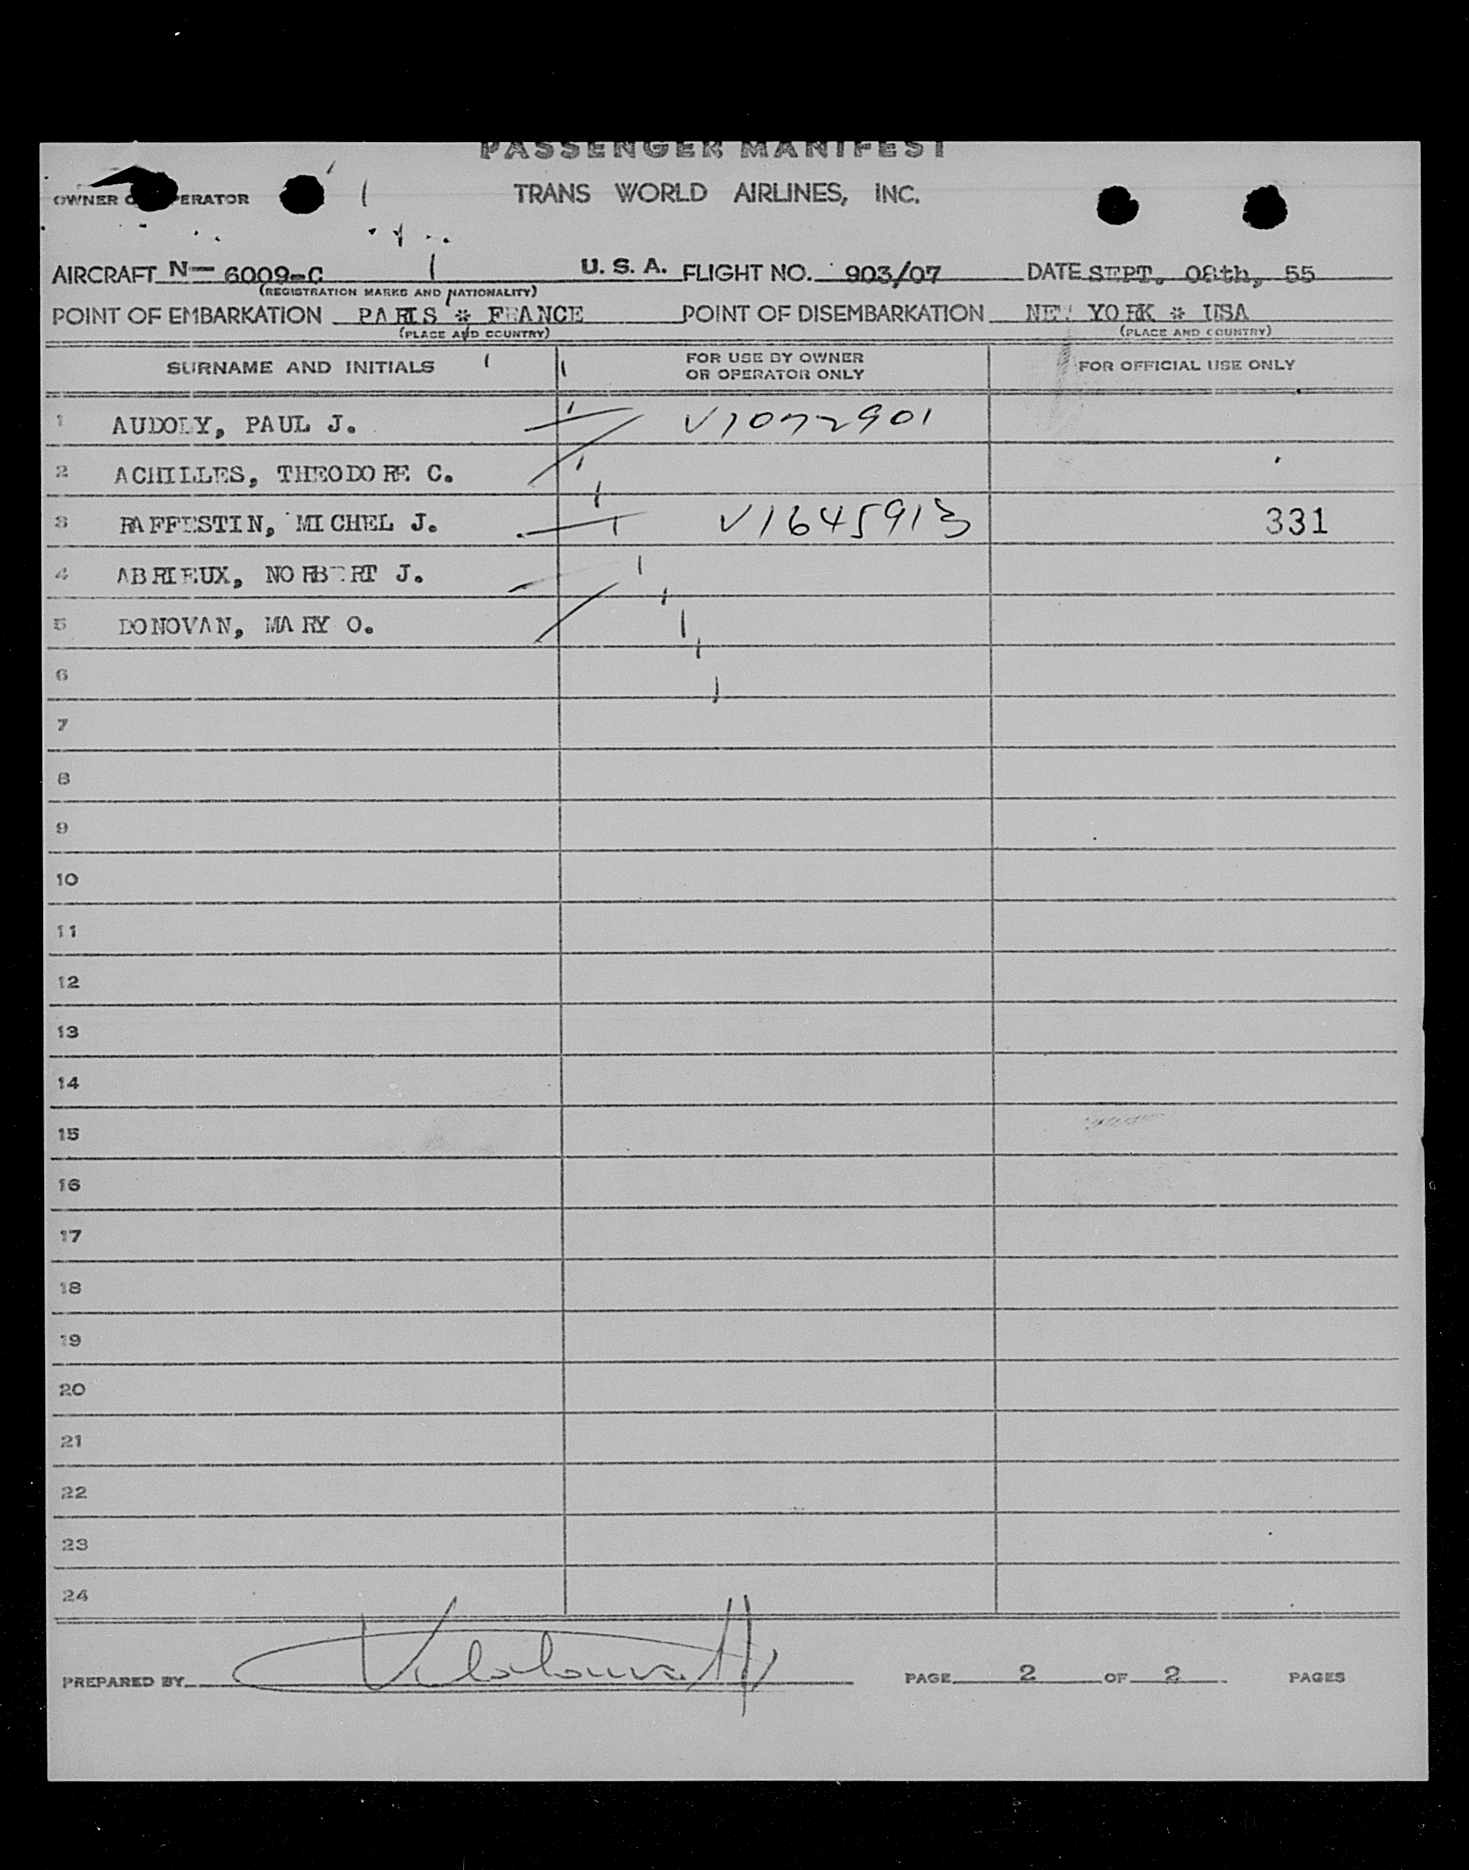 PASSENGER MANIFEST
OWNER OPERATOR TRANS WORLD AIRLINES, INC.
AIRCRAFT N— 6009-C U. S. A. FLIGHT NO. 903/07 DATE SEPT. 08th, 55
(REGISTRATION MARKS AND NATIONALITY)
POINT OF EMBARKATION PARIS * FRANCE POINT OF DISEMBARKATION NEW YORK * USA
(PLACE AND COUNTRY) (PLACE AND COUNTRY)
SURNAME AND INITIALS FOR USE BY OWNER OR OPERATOR ONLY FOR OFFICIAL USE ONLY
1 AUDOLY, PAUL J. V1072901
2 ACHILLES, THEODORE C.
3 RAFFESTIN, MICHEL J. V1645913 331
4 ABRIEUX, NORBERT J.
5 DONOVAN, MARY O.
6
7
8
9
10
11
12
13
14
15
16
17
18
19
20
21
22
23
24
PREPARED BY PAGE 2 OF 2 PAGES